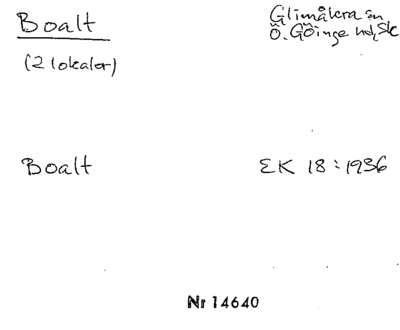 Boalt
Glimåkra sn
Ö. Göinge hd, Sk
(2 lokaler)
Boalt
EK 18:1936
Nr 14640